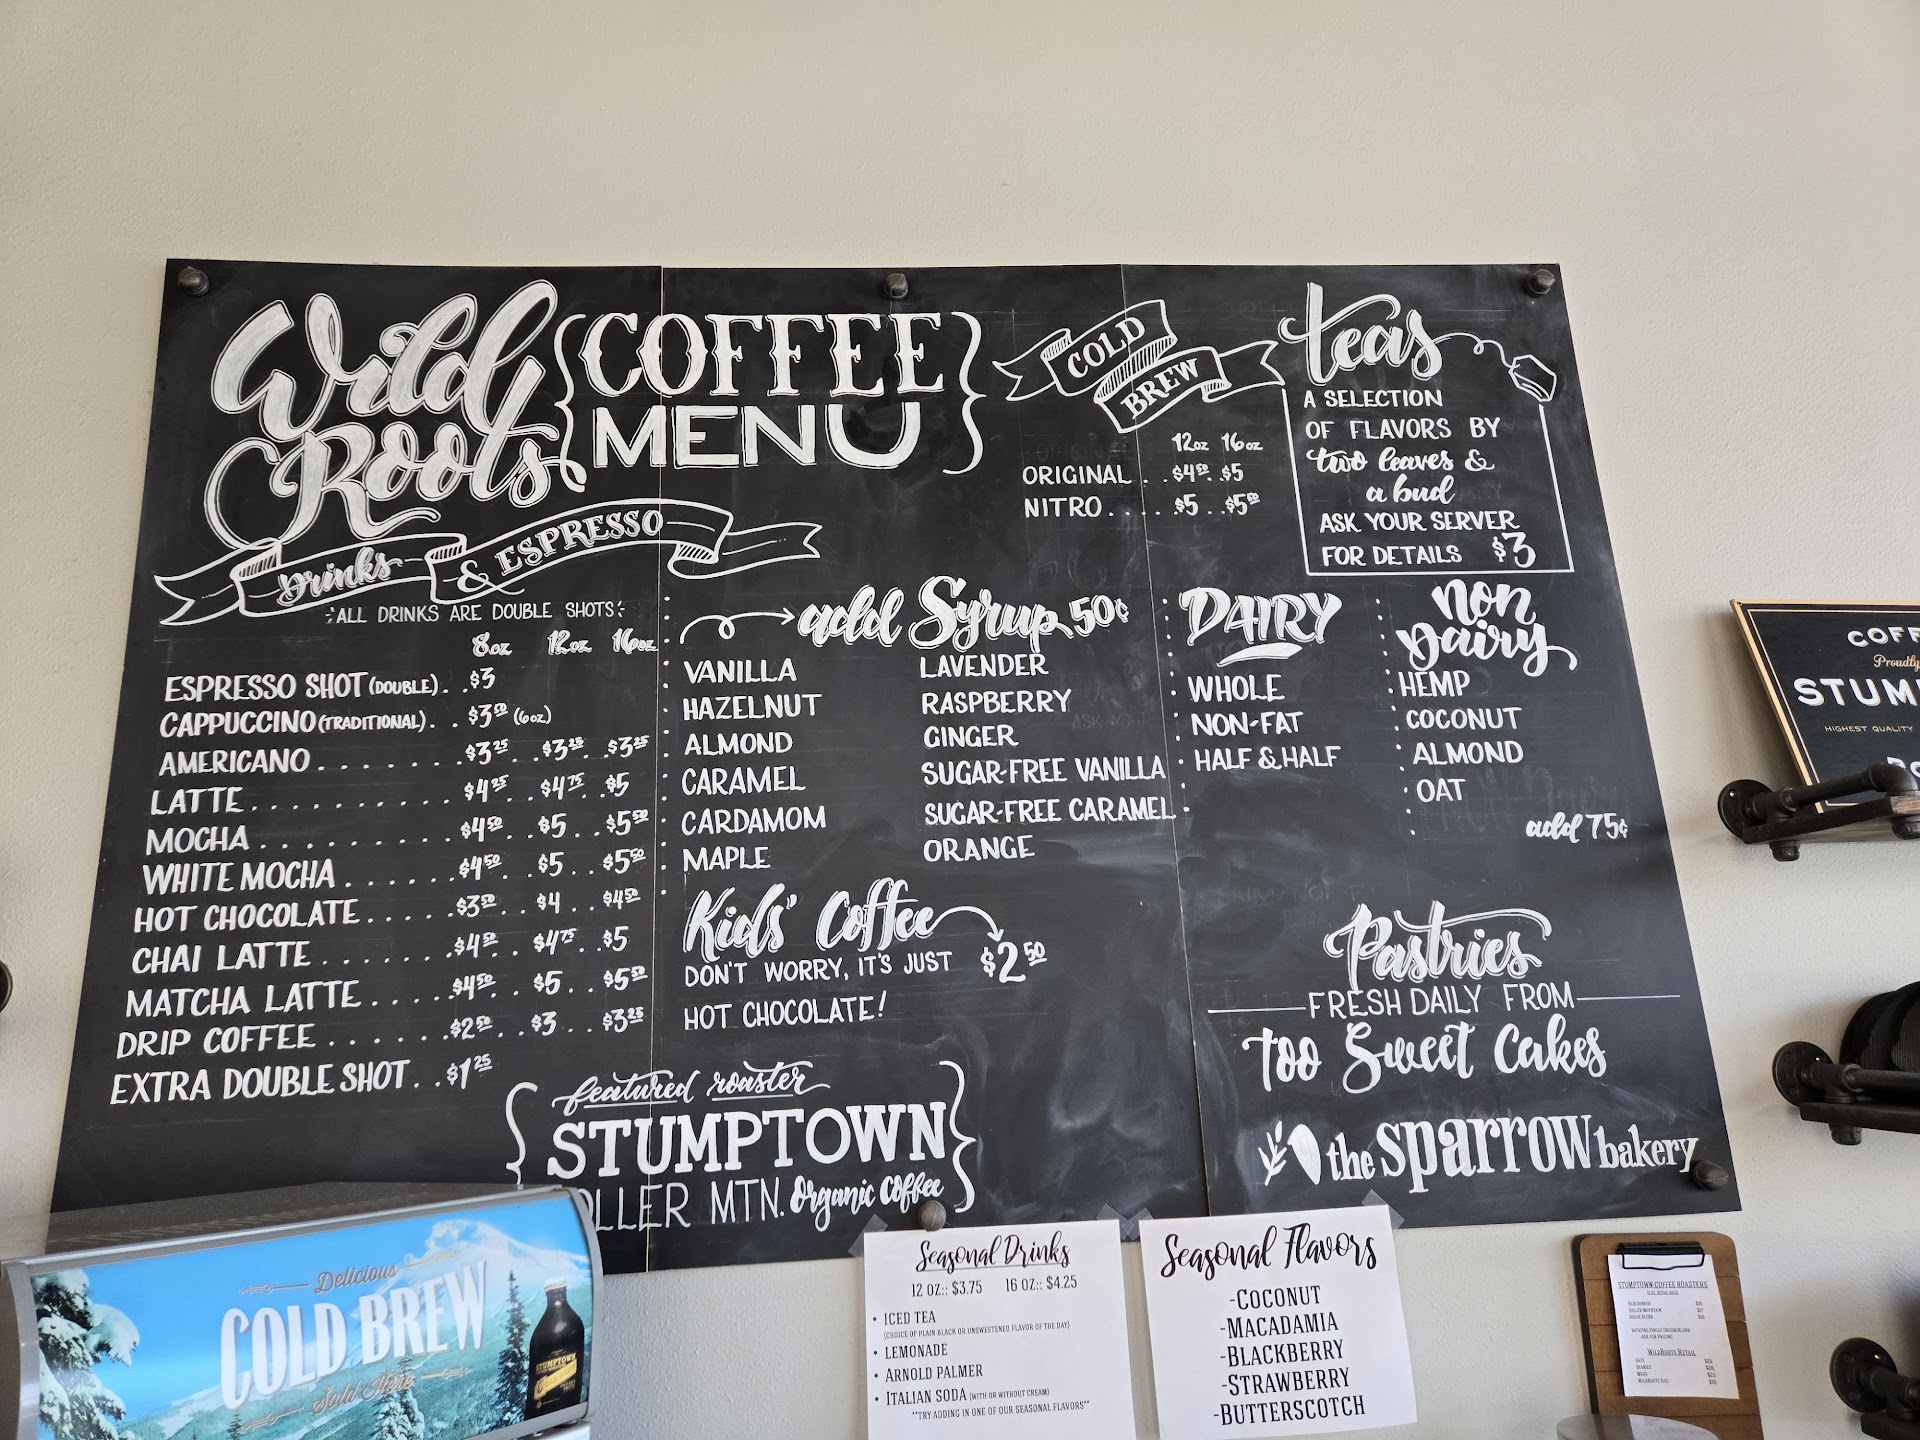 Wild Roots
{COFFEE MENU}
Drinks & ESPRESSO
ALL DRINKS ARE DOUBLE SHOTS
8oz 12oz 16oz
ESPRESSO SHOT (DOUBLE). . $3
CAPPUCCINO (TRADITIONAL). . $3.50 (6oz)
AMERICANO . . . . . . . $3.25 . . $3.25 . . $3.25
LATTE . . . . . . . . . . $4.25 . . $4.75 . . $5
MOCHA . . . . . . . . . . $4.50 . . $5 . . $5.50
WHITE MOCHA . . . . . . $4.50 . . $5 . . $5.50
HOT CHOCOLATE . . . . . $3.50 . . $4 . . $4.50
CHAI LATTE . . . . . . . $4.50 . . $4.75 . . $5
MATCHA LATTE . . . . . $4.50 . . $5 . . $5.50
DRIP COFFEE . . . . . . $2.50 . . $3 . . $3.25
EXTRA DOUBLE SHOT . . $1.25
add Syrup 50¢
VANILLA
HAZELNUT
ALMOND
CARAMEL
CARDAMOM
MAPLE
LAVENDER
RASPBERRY
GINGER
SUGAR-FREE VANILLA
SUGAR-FREE CARAMEL
ORANGE
Kids' Coffee
DON'T WORRY, IT'S JUST $2.50
HOT CHOCOLATE!
featured roaster
STUMPTOWN
MTN. Organic Coffee
COLD BREW
12oz 16oz
ORIGINAL . . $4.50 . . $5
NITRO . . . . $5 . . $5.50
teas
A SELECTION
OF FLAVORS BY
two leaves &
a bud
ASK YOUR SERVER
FOR DETAILS $3
DAIRY
WHOLE
NON-FAT
HALF & HALF
non Dairy
HEMP
COCONUT
ALMOND
OAT
add 75¢
Pastries
FRESH DAILY FROM
Too Sweet Cakes
the sparrow bakery
Delicious
COLD BREW
Sold Here
STUMPTOWN
Seasonal Drinks
12 OZ:: $3.75 16 OZ:: $4.25
• ICED TEA
(CHOICE OF PLAIN BLACK OR UNSWEETENED FLAVOR OF THE DAY)
• LEMONADE
• ARNOLD PALMER
• ITALIAN SODA (WITH OR WITHOUT CREAM)
**TRY ADDING IN ONE OF OUR SEASONAL FLAVORS**
Seasonal Flavors
-COCONUT
-MACADAMIA
-BLACKBERRY
-STRAWBERRY
-BUTTERSCOTCH
Proudly
HIGHEST QUALITY
STUMPTOWN COFFEE ROASTERS
HAIR BENDER
HOLLER MOUNTAIN
HOUSE BLEND
WILDROOTS RETAIL